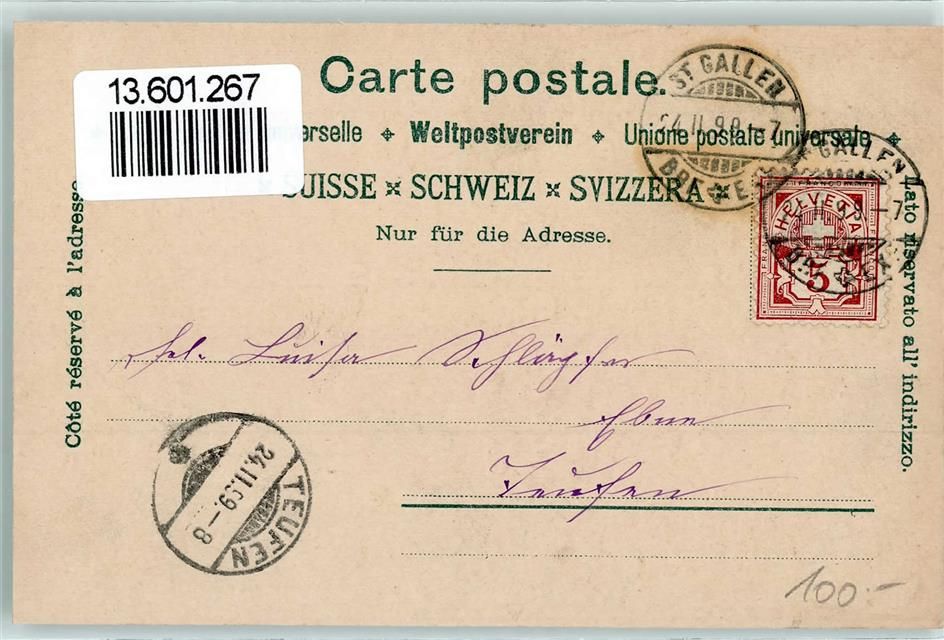 13.601.267
Carte postale.
erselle ✦ Weltpostverein ✦ Unione postale universale ✦
SUISSE ✕ SCHWEIZ ✕ SVIZZERA
Nur für die Adresse.
Côté réservé à l'adresse
Lato riservato all' indirizzo.
ST GALLEN
24.II.99.-7
ST GALLEN
-7
HELVETIA
FRANCO
5
Frl. Luisa Schläpfer
Eben
Teufen
24.II.99.-8
TEUFEN
100.-